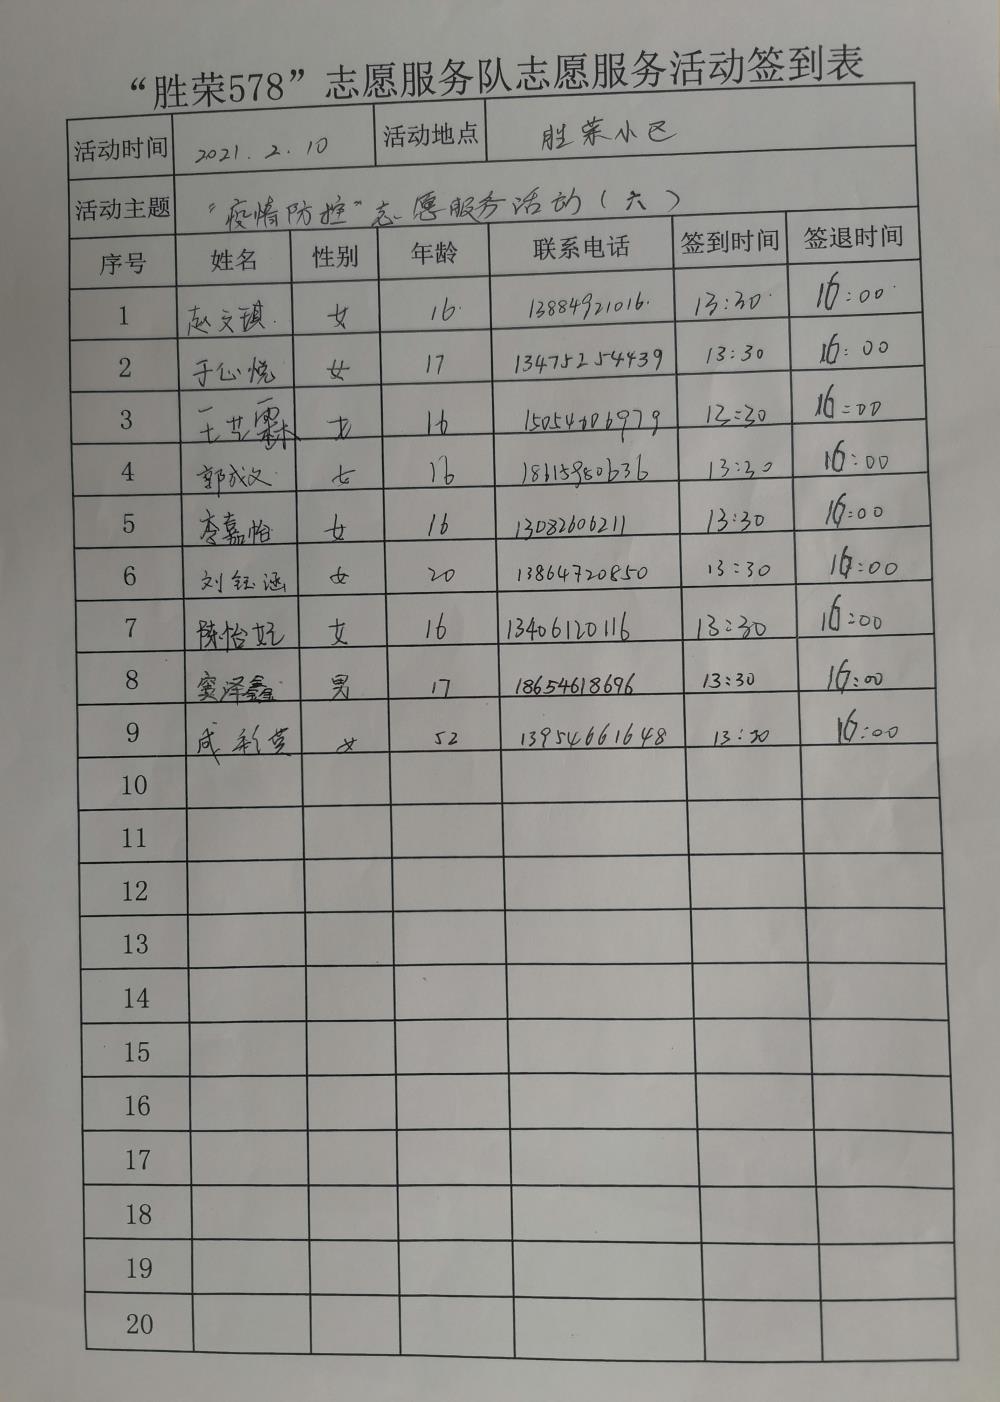 “胜荣578”志愿服务队志愿服务活动签到表
活动时间 2021.2.10 活动地点 胜荣小区
活动主题 “疫情防控”志愿服务活动（六）
序号 姓名 性别 年龄 联系电话 签到时间 签退时间
1 赵文琪 女 16 13884921016 13:30 16:00
2 于心悦 女 17 13475254439 13:30 16:00
3 王艺霖 女 16 15054606979 13:30 16:00
4 郭成文 女 16 18615950636 13:30 16:00
5 李嘉怡 女 16 13082606211 13:30 16:00
6 刘钰涵 女 20 13864720850 13:30 16:00
7 陈怡妃 女 16 13406120116 13:30 16:00
8 窦泽鑫 男 17 18654618696 13:30 16:00
9 成彩英 女 52 13954661648 13:30 16:00
10
11
12
13
14
15
16
17
18
19
20